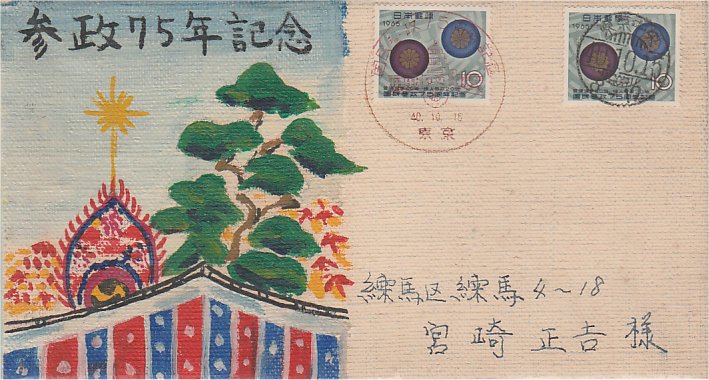 参政75年記念
日本郵便
1965
10
日本郵便
1965
10
40.10.15
東京
練馬区練馬4〜18
宮崎正吉様